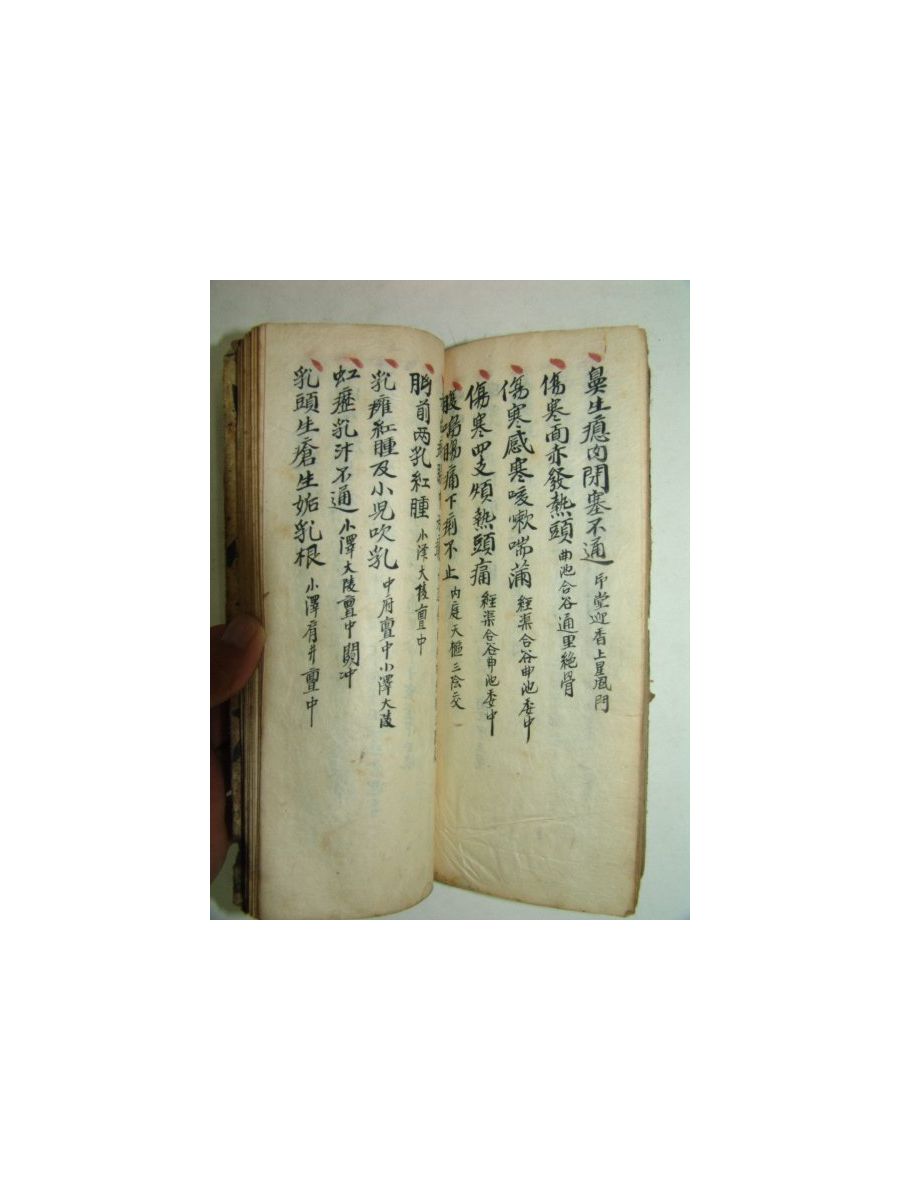 鼻生瘜肉閉塞不通 印堂迎香上星風門
傷寒面赤發熱頭 曲池合谷通里絶骨
傷寒感寒咳嗽喘蒲 經渠合谷曲池委中
傷寒四支煩熱頭痛 經渠合谷曲池委中
腹鳴腸痛下痢不止 內庭天樞三陰交
胸前两乳紅腫 小澤大陵亶中
乳癰紅腫及小児吹乳 中府亶中小澤大陵
虹症乳汁不通 小澤大陵亶中関冲
乳頭生瘡生妬乳根 小澤肩井亶中